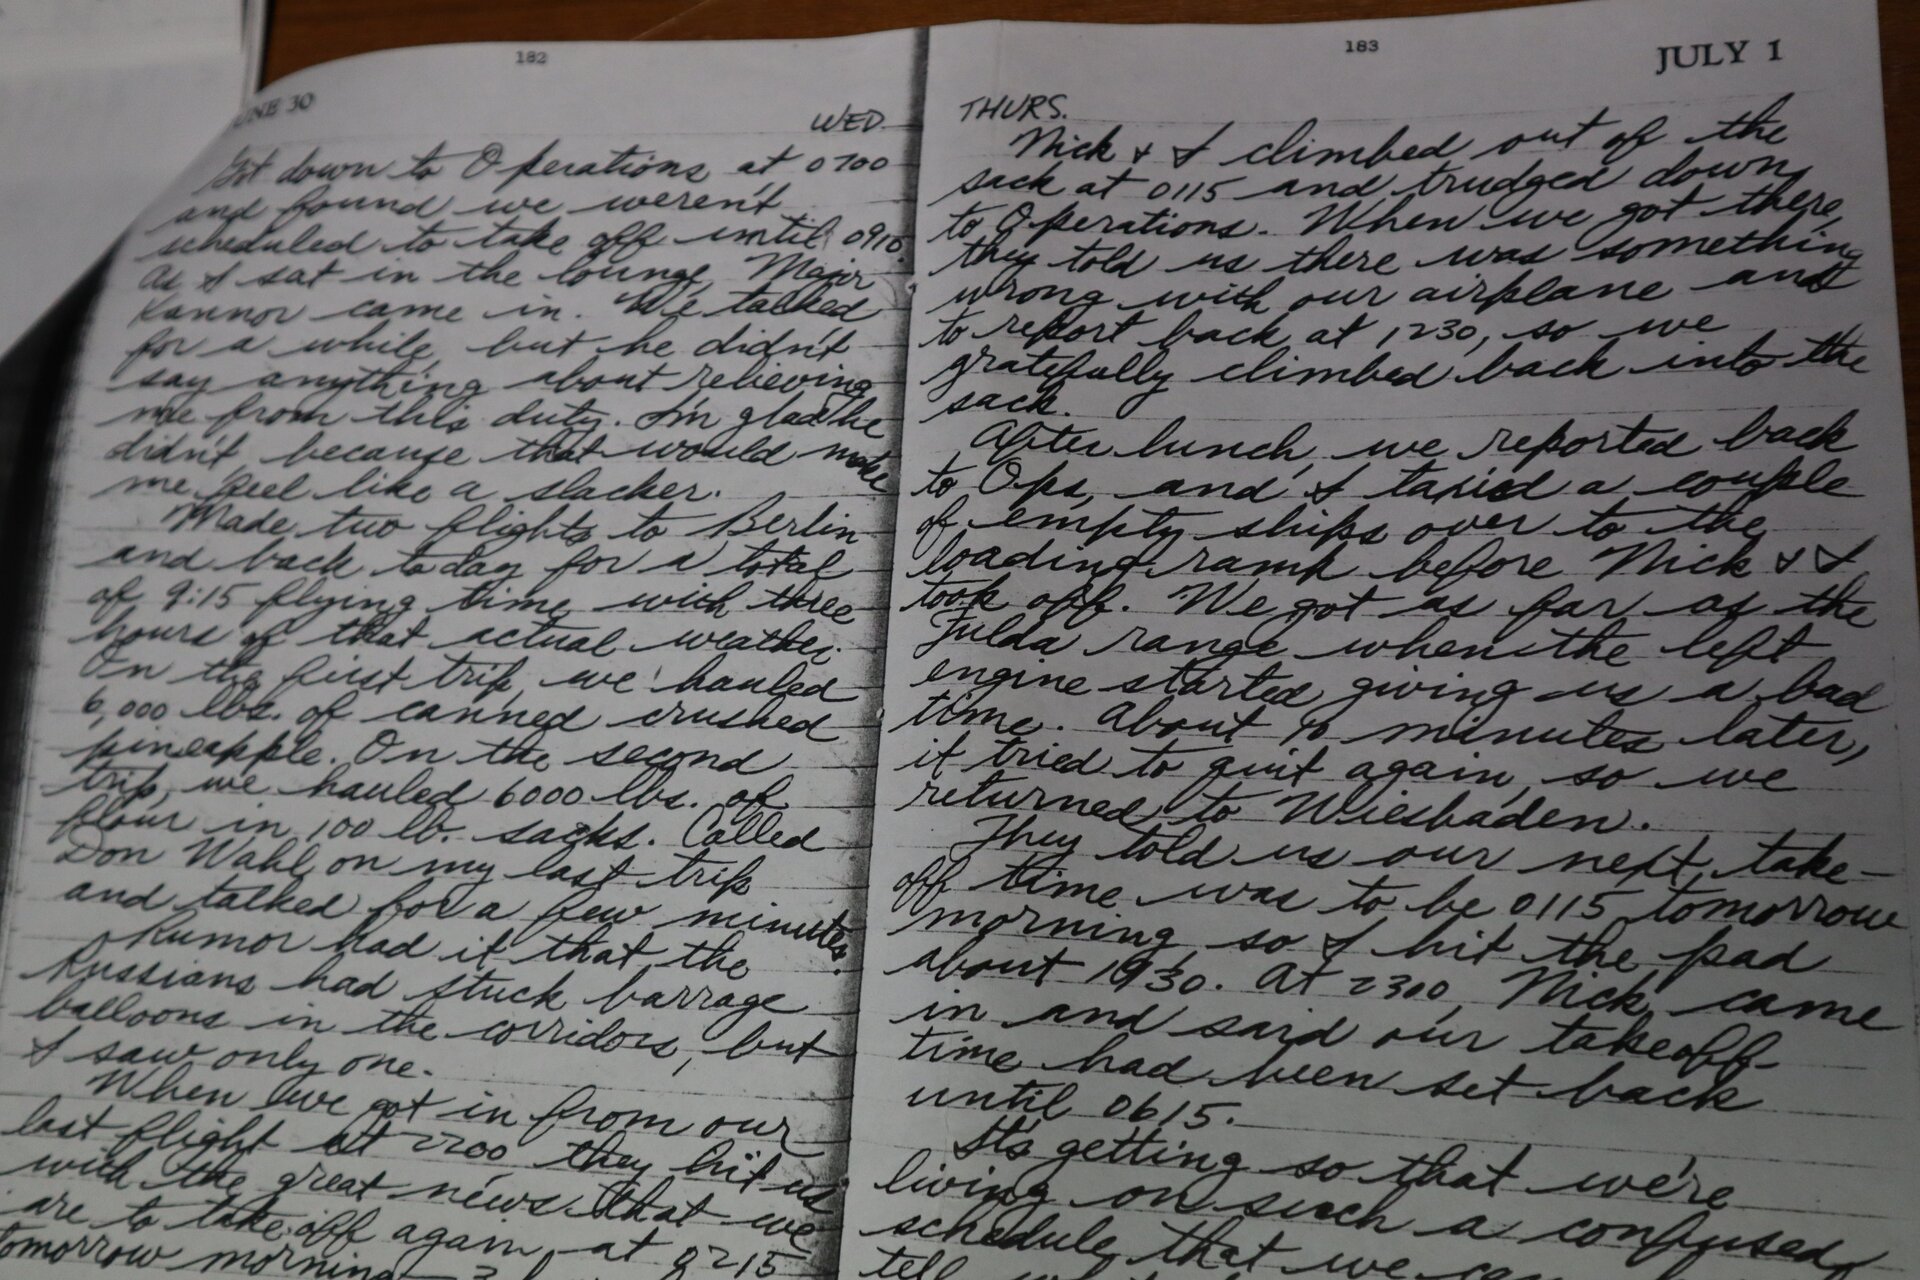 182
JUNE 30
WED.
Got down to Operations at 0700
and found we weren't
scheduled to take off until 0910.
As I sat in the lounge, Major
Kannor came in. We talked
for a while, but he didn't
say anything about relieving
me from this duty. I'm glad he
didn't because that would make
me feel like a slacker.
Made two flights to Berlin
and back today for a total
of 9:15 flying time with three
hours of that actual weather.
On the first trip, we hauled
6,000 lbs. of canned crushed
pineapple. On the second
trip, we hauled 6000 lbs. of
flour in 100 lb. sacks. Called
Don Wahl on my last trip
and talked for a few minutes.
Rumor had it that the
Russians had stuck barrage
balloons in the corridors, but
I saw only one.
When we got in from our
last flight at 2200 they hit us
with the great news that we
are to take off again at 0215
tomorrow morning
183
JULY 1
THURS.
Nick & I climbed out of the
sack at 0115 and trudged down
to Operations. When we got there,
they told us there was something
wrong with our airplane and
to report back at 1230, so we
gratefully climbed back into the
sack.
After lunch we reported back
to Ops, and I taxied a couple
of empty ships over to the
loading ramp before Nick & I
took off. We got as far as the
Fulda range when the left
engine started giving us a bad
time. About 10 minutes later,
it tried to quit again, so we
returned to Wiesbaden.
They told us our next take-
off time was to be 0115 tomorrow
morning so I hit the pad
about 1930. At 2300, Nick came
in and said our takeoff
time had been set back
until 0615.
It's getting so that we're
living on such a confused
schedule that we can
tell